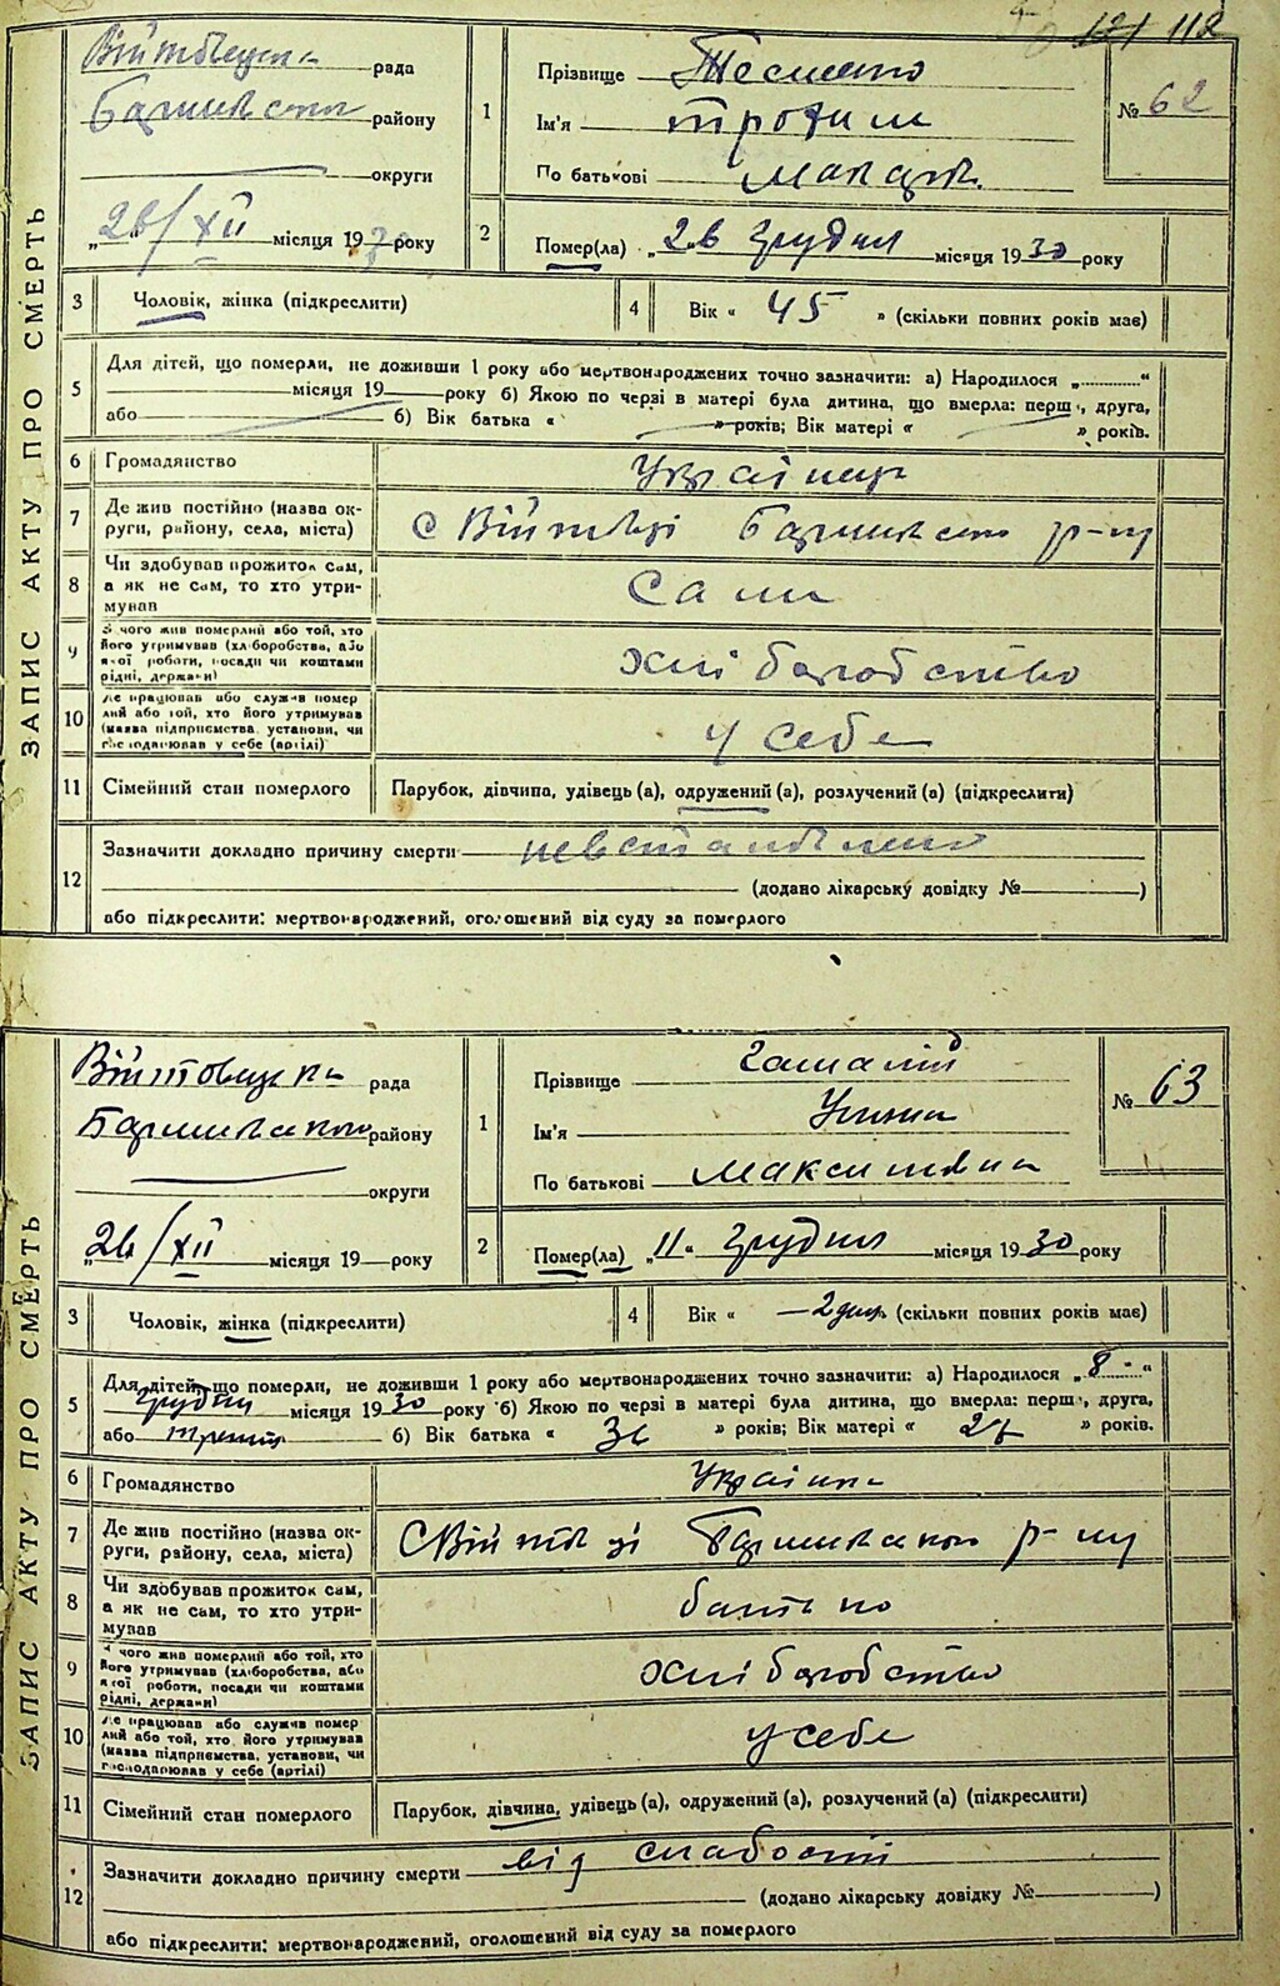 121 112
ЗАПИС АКТУ ПРО СМЕРТЬ
рада
району
округи
„26/XII місяця 1930 року
1
Прізвище
Ім'я Трохим
По батькові Макарів.
№ 62
2
Помер(ла) „26 грудня місяця 1930 року
3 Чоловік, жінка (підкреслити)
4 Вік « 45 » (скільки повних років має)
5 Для дітей, що померли, не доживши 1 року або мертвонароджених точно зазначити: а) Народилося „..........“
місяця 19 року б) Якою по черзі в матері була дитина, що вмерла: перша, друга,
або б) Вік батька « » років; Вік матері « » років.
6 Громадянство Українець
7 Де жив постійно (назва округи, району, села, міста) с Війтівці р-ну
8 Чи здобував прожиток сам,
а як не сам, то хто утри-
мував
Сам
9 З чого жив померлий або той, хто
його утримував (хліборобства, або
якої роботи, посади чи коштами
рідні, держави)
хліборобство
10 Де працював або служив помер
лий або той, хто його утримував
(назва підприємства, установи, чи
господарював у себе (артілі)
у себе
11 Сімейний стан померлого Парубок, дівчина, удівець (а), одружений (а), розлучений (а) (підкреслити)
12 Зазначити докладно причину смерти невстановлено
(додано лікарську довідку № )
або підкреслити: мертвонароджений, оголошений від суду за померлого
ЗАПИС АКТУ ПРО СМЕРТЬ
Війтовецька рада
району
округи
„26/XII місяця 19 року
1
Прізвище
Ім'я
По батькові Максимівна
№ 63
2
Помер(ла) „11“ грудня місяця 1930 року
3 Чоловік, жінка (підкреслити)
4 Вік « —2 дня (скільки повних років має)
5 Для дітей, що померли, не доживши 1 року або мертвонароджених точно зазначити: а) Народилося „8“
грудня місяця 1930 року б) Якою по черзі в матері була дитина, що вмерла: перша, друга,
або третя б) Вік батька « » років; Вік матері « » років.
6 Громадянство Українка
7 Де жив постійно (назва округи, району, села, міста) с Війтівці р-ну
8 Чи здобував прожиток сам,
а як не сам, то хто утри-
мував
батько
9 З чого жив померлий або той, хто
його утримував (хліборобства, або
якої роботи, посади чи коштами
рідні, держави)
хліборобство
10 Де працював або служив помер
лий або той, хто його утримував
(назва підприємства, установи, чи
господарював у себе (артілі)
у себе
11 Сімейний стан померлого Парубок, дівчина, удівець (а), одружений (а), розлучений (а) (підкреслити)
12 Зазначити докладно причину смерти від слабости
(додано лікарську довідку № )
або підкреслити: мертвонароджений, оголошений від суду за померлого